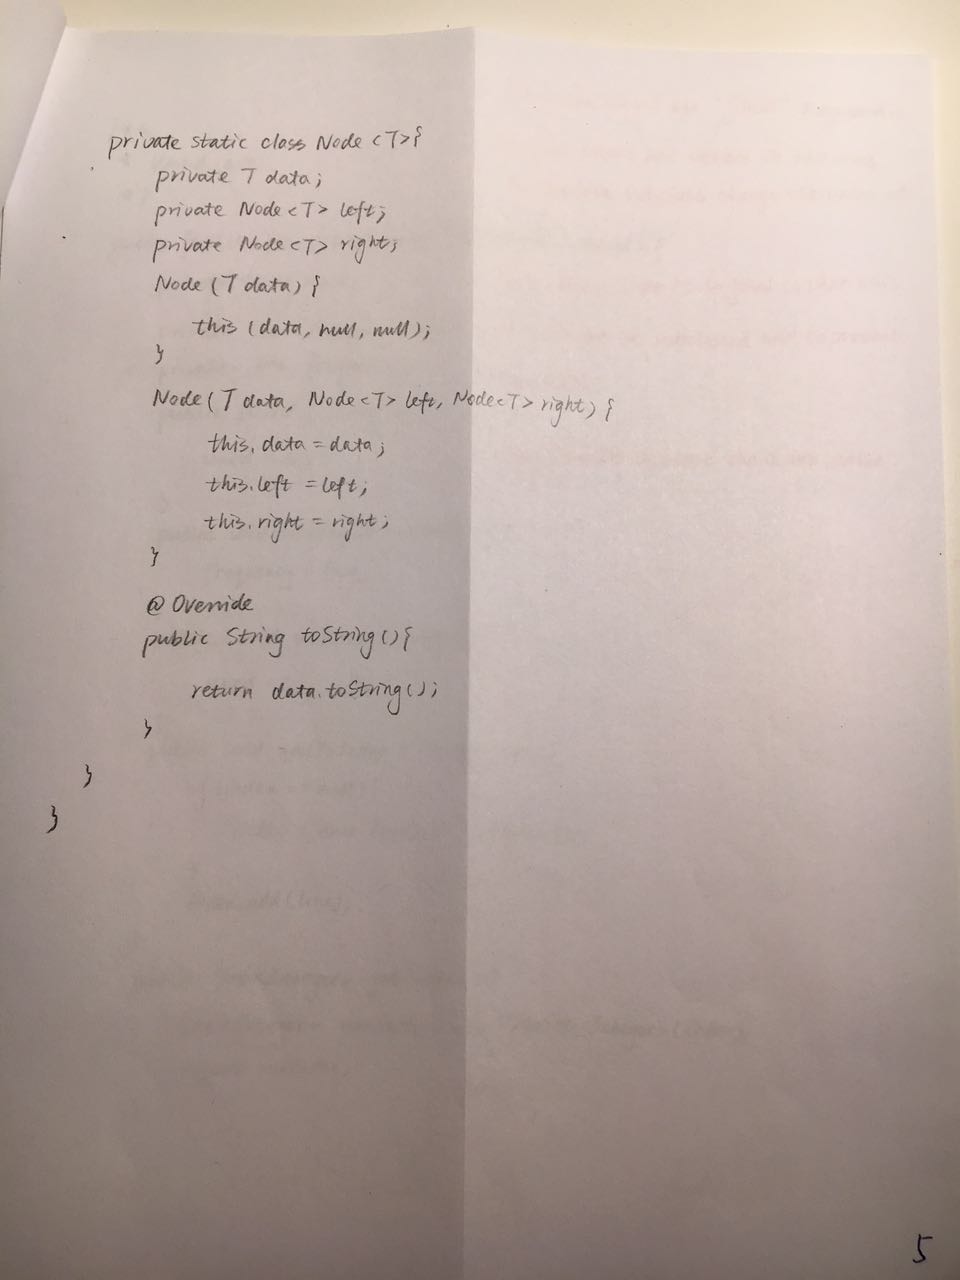 private static class Node <T>{
private T data;
private Node<T> left;
private Node<T> right;
Node (T data) {
this (data, null, null);
}
Node (T data, Node<T> left, Node<T> right) {
this.data = data;
this.left = left;
this.right = right;
}
@Override
public String toString(){
return data.toString();
}
}
}
5